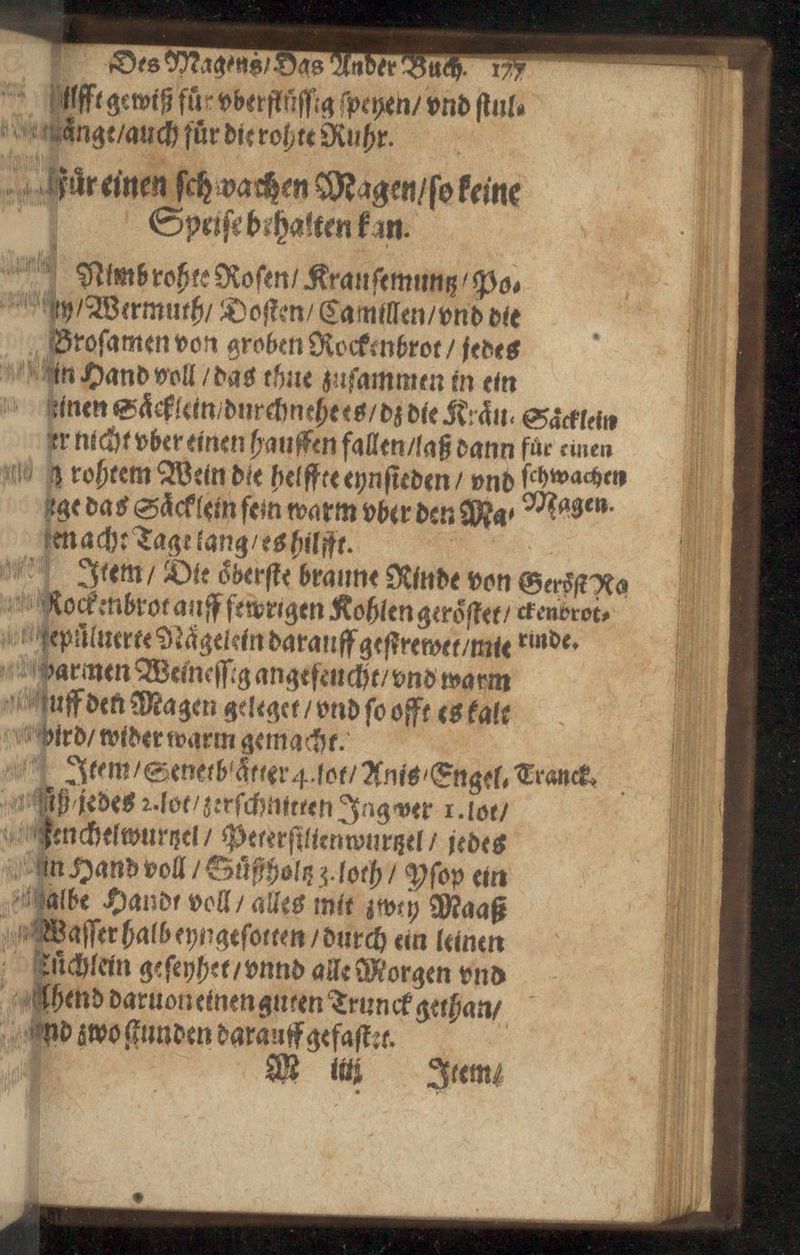 Des Magens/ Das Ander Buch. 177
hilfft gewiß fuͤr vberfluͤſſig ſpeyen/ vnd ſtul-
gaͤnge/ auch fuͤr die rohte Ruhr.
Fuͤr einen ſchwachen Magen/ ſo keine
Speiſe behalten kan.
Nimb rohte Roſen/ Krauſemuntz/ Po-
ley/ Wermuth/ Doſten/ Camillen/ vnd die
Broſamen von groben Rockenbrot/ jedes
ein Hand voll/ das thue zuſammen in ein
leinen Saͤcklein/ durchnehe es/ dz die Kraͤu-
ter nicht vber einen hauffen fallen/ laß dann
in rohtem Wein die helffte eynſieden/ vnd
lege das Saͤcklein fein warm vber den Ma-
gen acht Tage lang/ es hilfft.
Saͤcklein
fuͤr einen
ſchwachen
Magen.
Item/ Die oͤberſte braune Rinde von
Rockenbrot auff fewrigen Kohlen geroͤſtet/
gepuͤluerte Naͤgelein darauff geſtrewet/ mit
warmen Weineſſig angefeucht/ vnd warm
auff den Magen geleget/ vnd ſo offt es kalt
wird/ wider warm gemacht.
Geroͤſt Ro
ckenbrot-
rinde.
Item/ Senetblaͤtter 4. lot/ Anis/ Engel-
ſuͤß/ jedes 2. lot/ zerſchnitten Ingwer 1. lot/
Fenchelwurtzel/ Peterſilienwurtzel/ jedes
ein Hand voll/ Suͤßholtz 3. loth/ Yſop ein
halbe Handt voll/ alles mit zwey Maaß
Waſſer halb eyngeſotten/ durch ein leinen
tuͤchlein geſeyhet/ vnnd alle Morgen vnd
Abend daruon einen guten Trunck gethan/
vnd zwo ſtunden darauff gefaſtet.
Tranck.
M iiij Item/